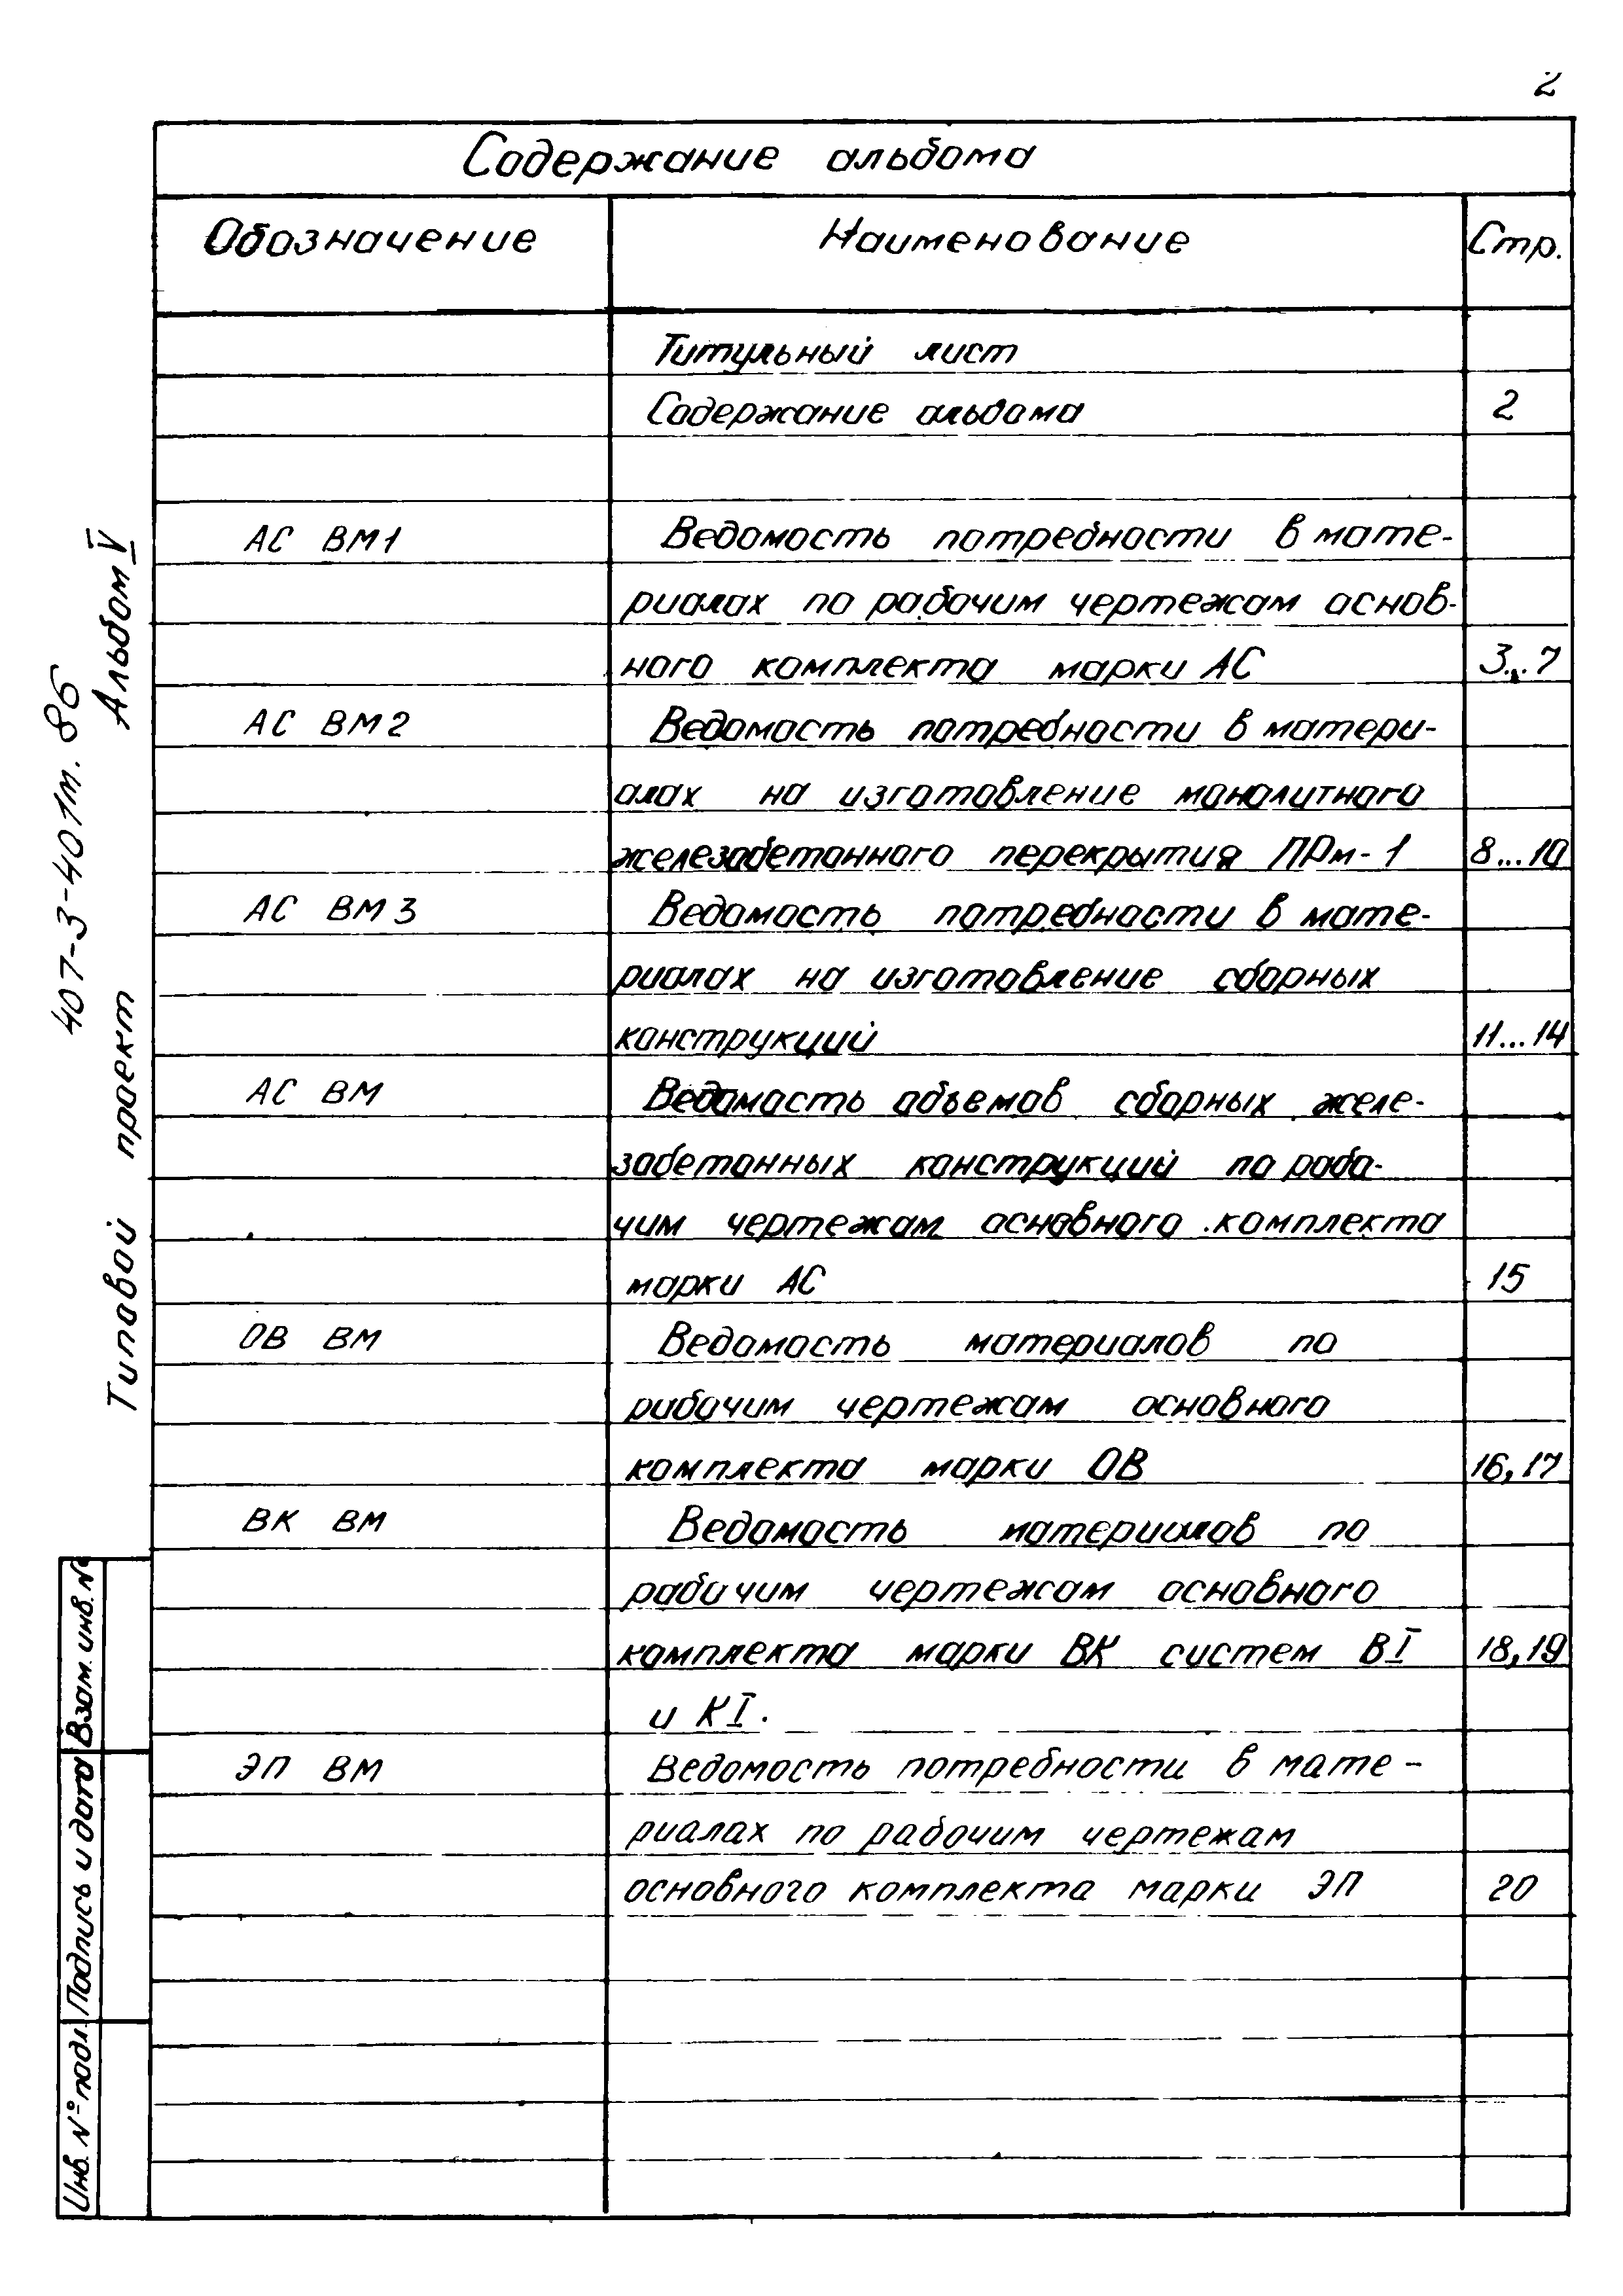 2
Содержание альбома
Обозначение Наименование Стр.
Титульный лист
Содержание альбома 2
АС ВМ1 Ведомость потребности в мате-
риалах по рабочим чертежам основ-
ного комплекта марки АС 3...7
АС ВМ2 Ведомость потребности в матери-
алах на изготовление монолитного
железобетонного перекрытия ПРм-1 8...10
АС ВМ3 Ведомость потребности в мате-
риалах на изготовление сборных
конструкций 11...14
АС ВМ Ведомость объемов сборных желе-
зобетонных конструкций по рабо-
чим чертежам основного комплекта
марки АС 15
ОВ ВМ Ведомость материалов по
рабочим чертежам основного
комплекта марки ОВ 16,17
ВК ВМ Ведомость материалов по
рабочим чертежам основного
комплекта марки ВК систем ВI 18,19
и КI.
ЭП ВМ Ведомость потребности в мате-
риалах по рабочим чертежам
основного комплекта марки ЭП 20
Типовой проект
407-3-401м.86
Альбом V
Взам. инв. №
Подпись и дата
Инв. № подл.